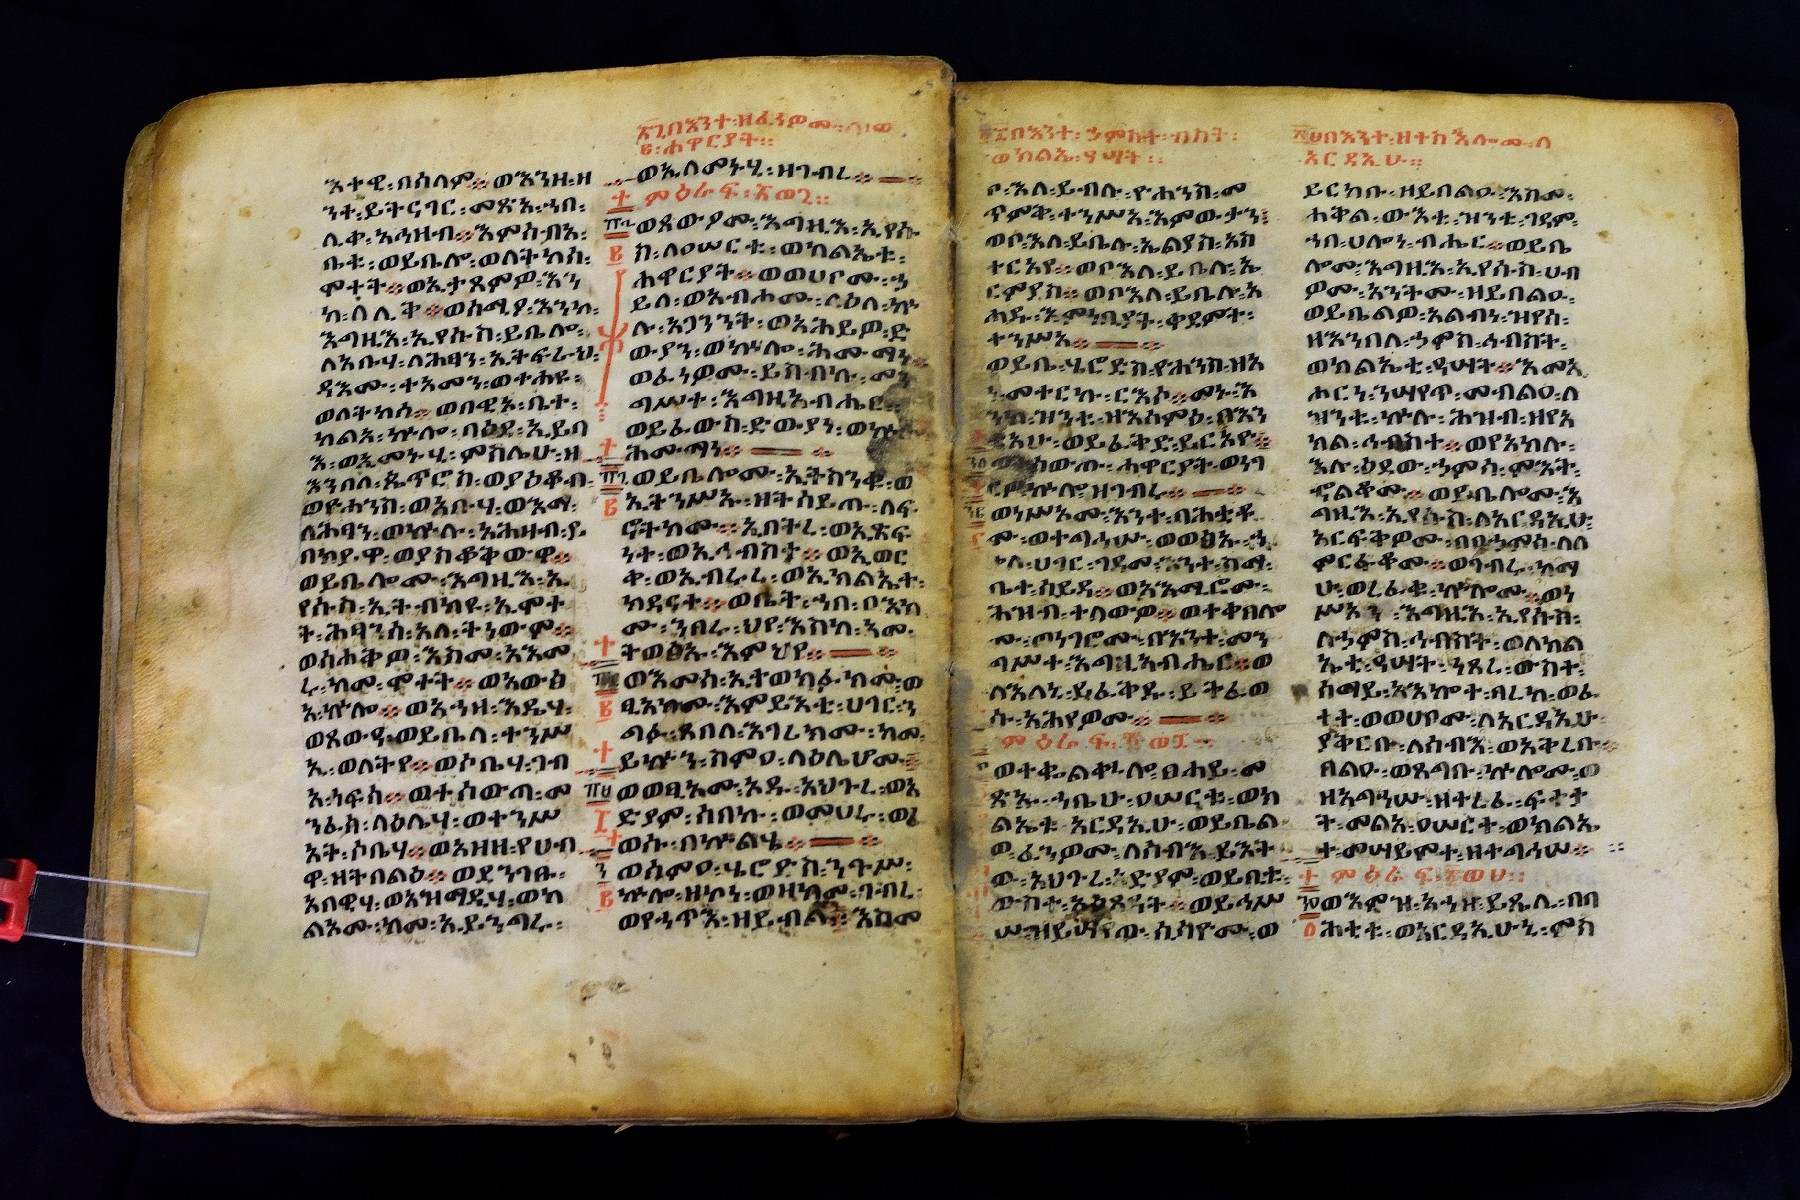 እተዊ፡በሰላም። ወእንዘ፡ዘ
ንተ፡ይትናገር፡መጽአ፡ኀበ፡
ሊቀ፡አሕዛብ። እምሰብአ፡
ቤቱ፡ወይቤሎ፡ወለትከሰ፡
ሞተት። ወኢታጸምዎ፡እን
ከ፡ለሊቅ። ወሰሚዖ፡እንከ፡
እግዚእ፡ኢየሱስ፡ይቤሎ፡
ለአቡሃ፡ለሕፃን፡ኢትፍራህ፡
ዳእሙ፡ተአመን፡ወተሐዩ፡
ወለትከሰ። ወበዊኦ፡ቤተ፡
ከልአ፡ኵሎ፡በዕደ፡ኢይባ
እ፡ወኢመኑሂ፡ምስሌሁ፡ዘ
እንበለ፡ጴጥሮስ፡ወያዕቆብ፡
ወዮሐንስ፡ወአቡሃ፡ወእማ፡
ለሕፃን፡ወኵሉ፡አሕዛብ፡ይ
በክያ፡ዋ፡ወያስቆቅውዋ።
ወይቤሎሙ፡እግዚእ፡ኢ
የሱስ፡ኢትብክዩ፡ኢሞተ
ት፡ሕፃንሰ፡አላ፡ትነውም።
ወሰሐቅዎ፡እስመ፡አእመ
ሩ፡ከመ፡ሞተት። ወአውፅ
አ፡ኵሎ። ወአኀዘ፡እዴሃ፡
ወጸውዓ፡ወይቤላ፡ተንሥ
ኢ፡ወለትየ። ወሶቤሃ፡ገብ
አ፡ነፍሳ። ወተሰውጠ፡መ
ንፈሳ፡ላዕሌሃ፡ወተንሥ
አት፡ሶቤሃ። ወአዘዘ፡የሀብ
ዋ፡ዘትበልዕ። ወደንገፁ፡
አበዊሃ፡ወአዝማዲሃ፡ወከ
ልኦሙ፡ከመ፡ኢይንግሩ፡
፳፫በእንተ፡ዘፈነዎሙ፡
፪፡ሐዋርያት።
ወኢለመኑሂ፡ዘገብረ።
ምዕራፍ፡፳ወ፫።
ወጸውዖሙ፡እግዚእ፡ኢየሱ
ስ፡ለዐሠርቱ፡ወክልኤቱ፡
ሐዋርያት። ወወሀቦሙ፡ኀ
ይለ፡ወአብሖሙ፡ላዕለ፡ኵ
ሉ፡አጋንንት፡ወአሕይዎ፡ድ
ውያን፡ወኵሎ፡ሕሙማነ
ወፈነዎሙ፡ይስብኩ፡መን
ግሥተ፡እግዚአብሔር።
ወይፈውሱ፡ድውያነ፡ወኵሎ
ሕሙማነ።
ወይቤሎሙ፡ኢትከንቱ፡ወ
ኢትንሥኡ፡ዘትሰይጡ፡ለፍ
ኖትክሙ። ኢበትረ፡ወኢጽፍ
ነተ፡ወኢኅብስተ። ወኢወር
ቀ፡ወኢብሩረ፡ወኢክልኤተ፡
ክዳናተ። ወቤት፡ኀበ፡ቦእክ
ሙ፡ንበሩ፡ህየ፡እስከ፡አመ፡
ትወፅኡ፡እምህየ።
ወእመሰ፡ኢተወክፉክሙ፡ወ
ፂአክሙ፡እምይእቲ፡ሀገር፡ን
ግፉ፡ጸበለ፡እገሪክሙ፡ከመ፡
ይኵን፡ስምዐ፡ላዕሌሆሙ።
ወወፂኦሙ፡አዱ፡አህጉረ፡ወአ
ድያም፡ሰበኩ፡ወመሀሩ፡ወፈ
ወሱ፡በኵልሄ።
ወሰምዐ፡ሄሮድስ፡ንጉሥ፡
ኵሎ፡ዘኮነ፡ወዘከመ፡ገብረ፡
ወየኀጥእ፡ዘይብል። እስመ
፲በእንተ፡ኃምስቱ፡ኅብስት፡
ወክልኤ፡ዓሣት።
ቦ፡እለ፡ይብሉ፡ዮሐንስ፡መ
ጥምቅ፡ተንሥአ፡እምውታን፡
ወቦ፡እለ፡ይቤሉ፡ኤልያስ፡አስ
ተርአየ። ወቦእለ፡ይቤሉ፡ኤ
ርምያስ። ወቦእለ፡ይቤሉ፡አ
ሐዱ፡እምነቢያት፡ቀደምት፡
ተንሥአ።
ወይቤ፡ሄሮድስ፡ዮሐንስ፡ዘአ
ነ፡መተርኩ፡ርእሶ፡መኑ፡እ
ንከ፡ዝንቱ፡ዘእሰምዕ፡በእን
ቲአሁ፡ወይፈቅድ፡ይርአዮ።
ወሰውጡ፡ሐዋርያት፡ወነገ
ርዎ፡ኵሎ፡ዝገብሩ።
ወነሥአሙ፡እንተ፡ባሕቲቶ
ሙ፡ወተግሕሡ፡ወወፅኡ፡ኀ
በ፡ሀገር፡ገዳመ፡እንተ፡ስማ፡
ቤተ፡ሳይዳ። ወአእሚሮሙ፡
ሕዝብ፡ተለውዎ። ወተቀበሎ
ሙ፡ወነገሮሙ፡በእንተ፡መን
ግሥተ፡እግዚአብሔር። ወ
ለእለኒ፡ይፈቅዱ፡ይትፈወ
ሱ፡አሕየዎሙ።
ምዕራፍ፡፳ወ፬።
ወተቈልቊሎ፡ፀሐይ፡መ
ጽኡ፡ኀቤሁ፡ዐሠርቱ፡ወክ
ልኤቱ፡አርዳኢሁ፡ወይቤል
ወ፡ፈንዎሙ፡ለሰብእ፡ይእት
ው፡አህጉረ፡አድያም፡ወይቢቱ፡
ውስተ፡አዕጸዳት። ወይኅሥ
ሡ፡ዝይሣየጡ፡ሲሳዮሙ፡ወ
በእንተ፡ዘተስእሎሙ፡ለ
አርዳኢሁ።
ይርከቡ፡ዘይበልዑ፡እስመ፡
ሐቅል፡ውእቱ፡ዝንቱ፡ገዳም፡
ኀበ፡ሀሎነ፡ብሔር። ወይቤ
ሎሙ፡እግዚእ፡ኢየሱስ፡ሀብ
ዎሙ፡አንትሙ፡ዘይበልዑ፡
ወይቤልዎ፡አልብነ፡ዝየሰ፡
ዘእንበለ፡ኃምስ፡ኅብስት፡
ወክልኤቲ፡ዓሣት። እመአ
ሐርነ፡ንሣየጥ፡መብልዐ፡ለ
ዝንቱ፡ኵሉ፡ሕዝብ፡ዘየአ
ክል፡ኅብስተ። ወየአክሉ፡
እሉ፡ዕደው፡ኃምሳ፡ምእት፡
ኆልቆሙ። ወይቤሎሙ፡እ
ግዚእ፡ኢየሱስ፡ለአርዳኢሁ፡
አርፍቅዎሙ፡በበኃምሳ፡በበ
ምርፋቆሙ። ወገብሩ፡ከማ
ሁ፡ወረፈቁ፡ኵሎሙ። ወነ
ሥአ፡እግዚእ፡ኢየሱስ፡
ለኃምስ፡ኅብስት፡ወለክል
ኤቲ፡ዓሣት፡ነጸረ፡ውስተ፡
ሰማይ፡አእኰተ፡ባረከ፡ወፈ
ተተ፡ወወሀቦሙ፡ለአርዳኢሁ፡
ያቅርቡ፡ለሰብእ፡ወአቅረቡ።
በልዑ፡ወጸግቡ፡ኵሎሙ፡ወ
ዘአግኀሡ፡ዘተረፈ፡ፍተታ
ት፡መልአ፡ዐሠርተ፡ወክልኤ
ተ፡መሣይምተ፡ዘተግኅሠ።
ምዕራፍ፡፳ወ፭።
ወእምዝ፡እኀዘ፡ይጼሊ፡በባ
ሕቲቱ፡ወአርዳኢሁኒ፡ምስ